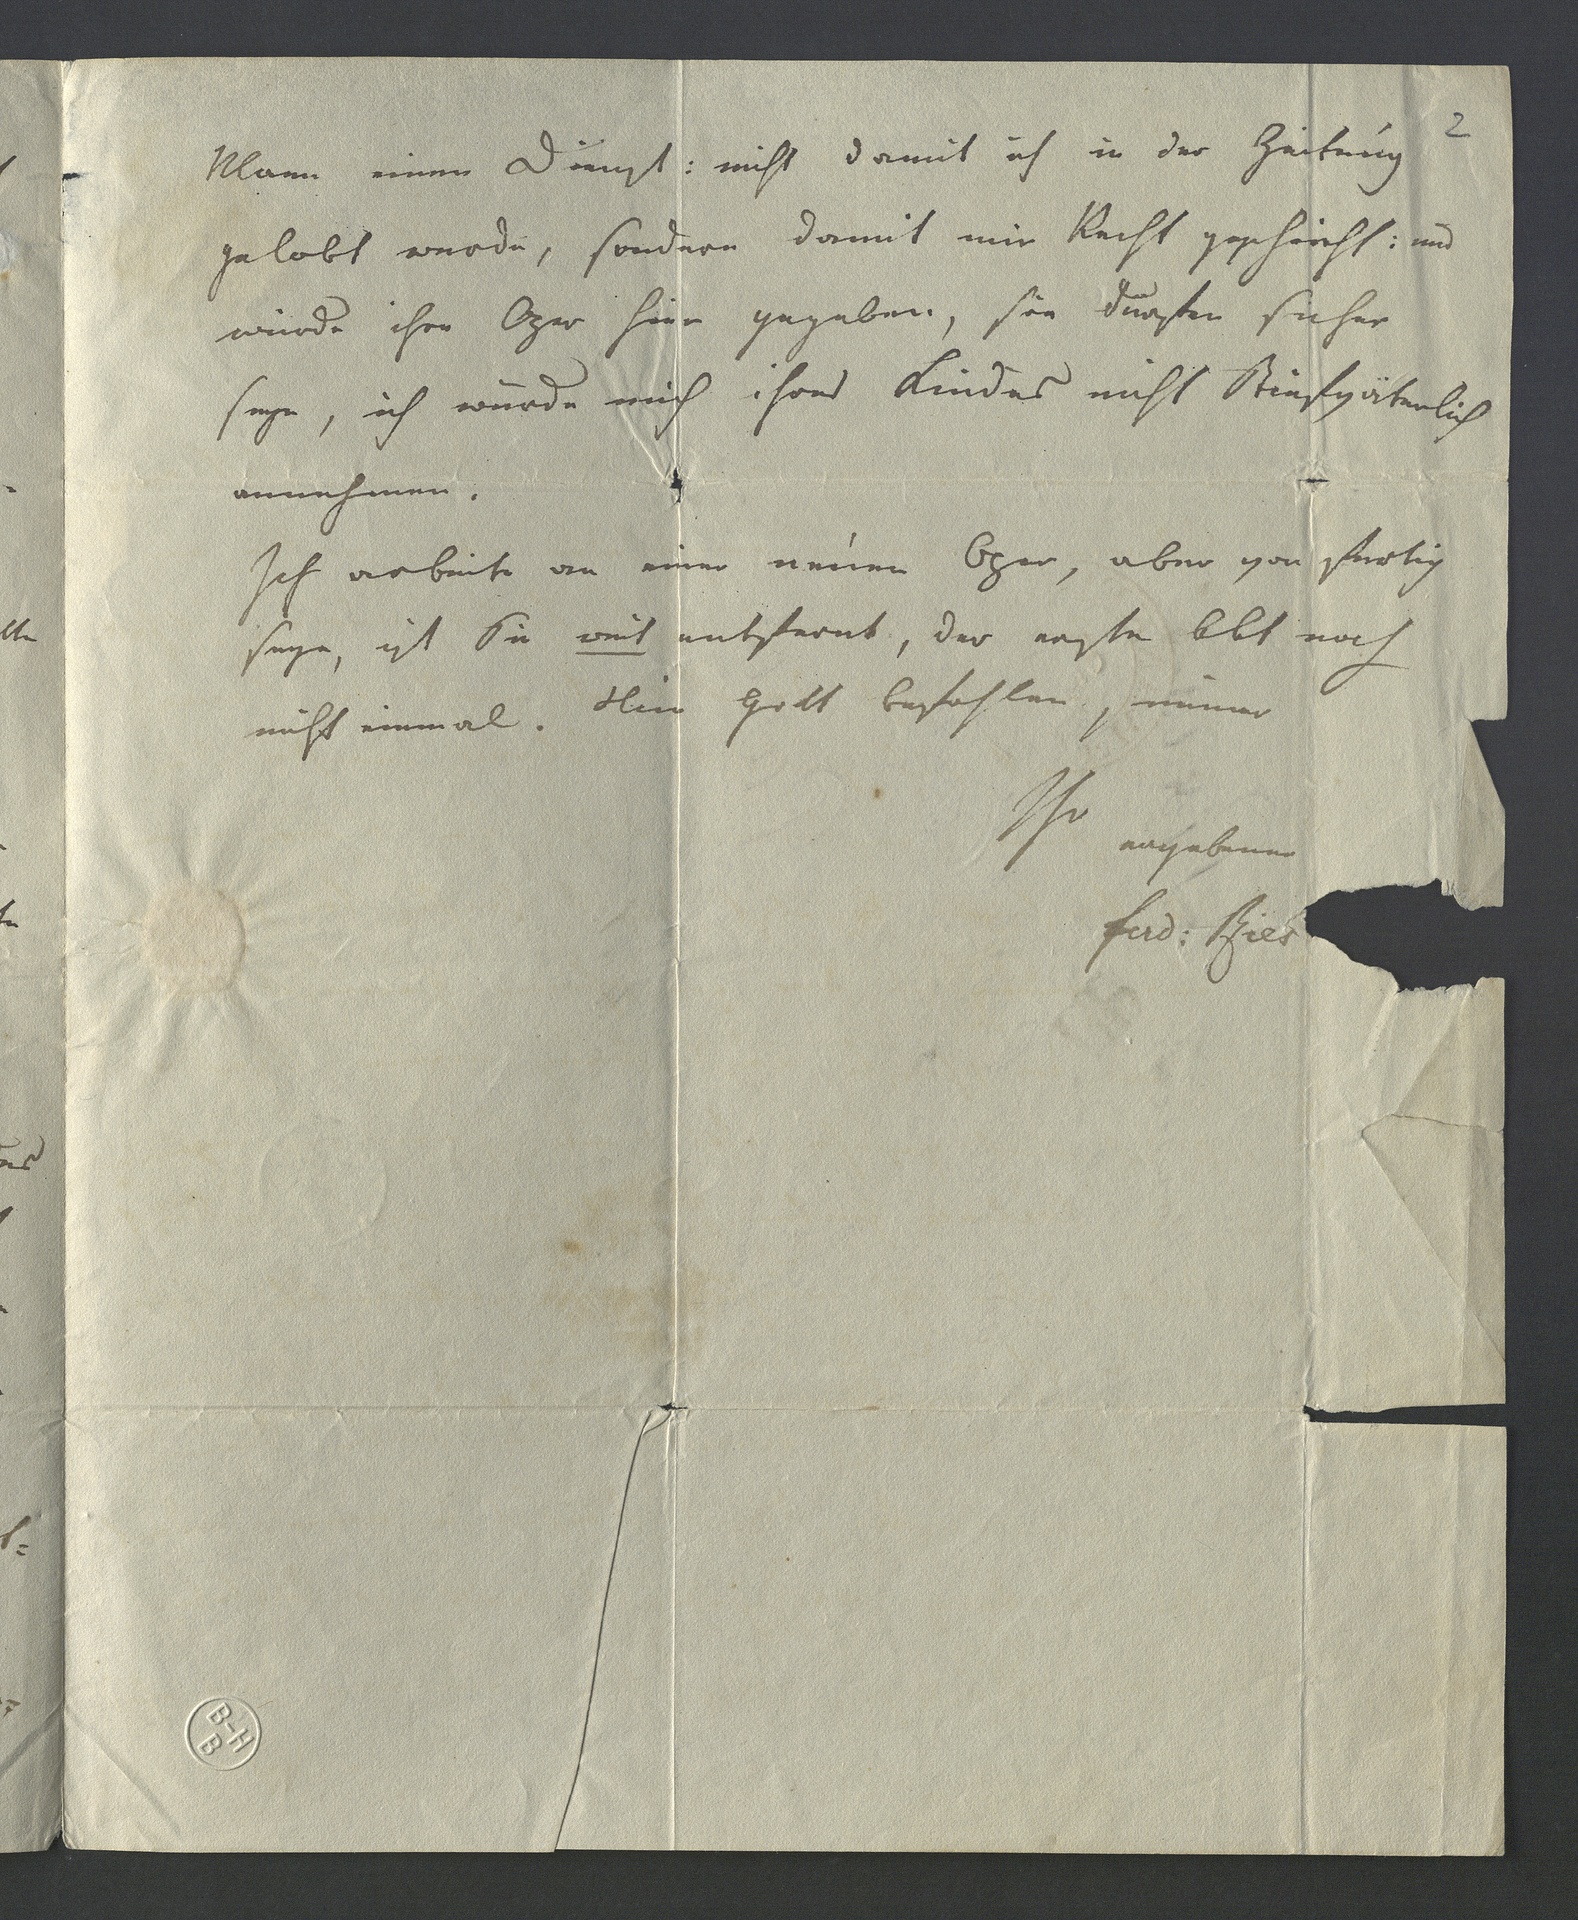 2
Mann einen Dienst: nicht damit ich in der Zeitung
gelobt werde, sondern damit mir Recht geschieht: und
würde ihre Oper hier gegeben, sie dürften sicher
seyn, ich würde mich ihres Kindes nicht Stiefväterlich
annehmen.
Ich arbeite an einer neuen Oper, aber von fertig
seyn, ist Sie weit entfernt, der erste Akt noch
nicht einmal. Nun Gott befohlen, immer
Ihr
ergebener
Ferd: Ries
B-H
B